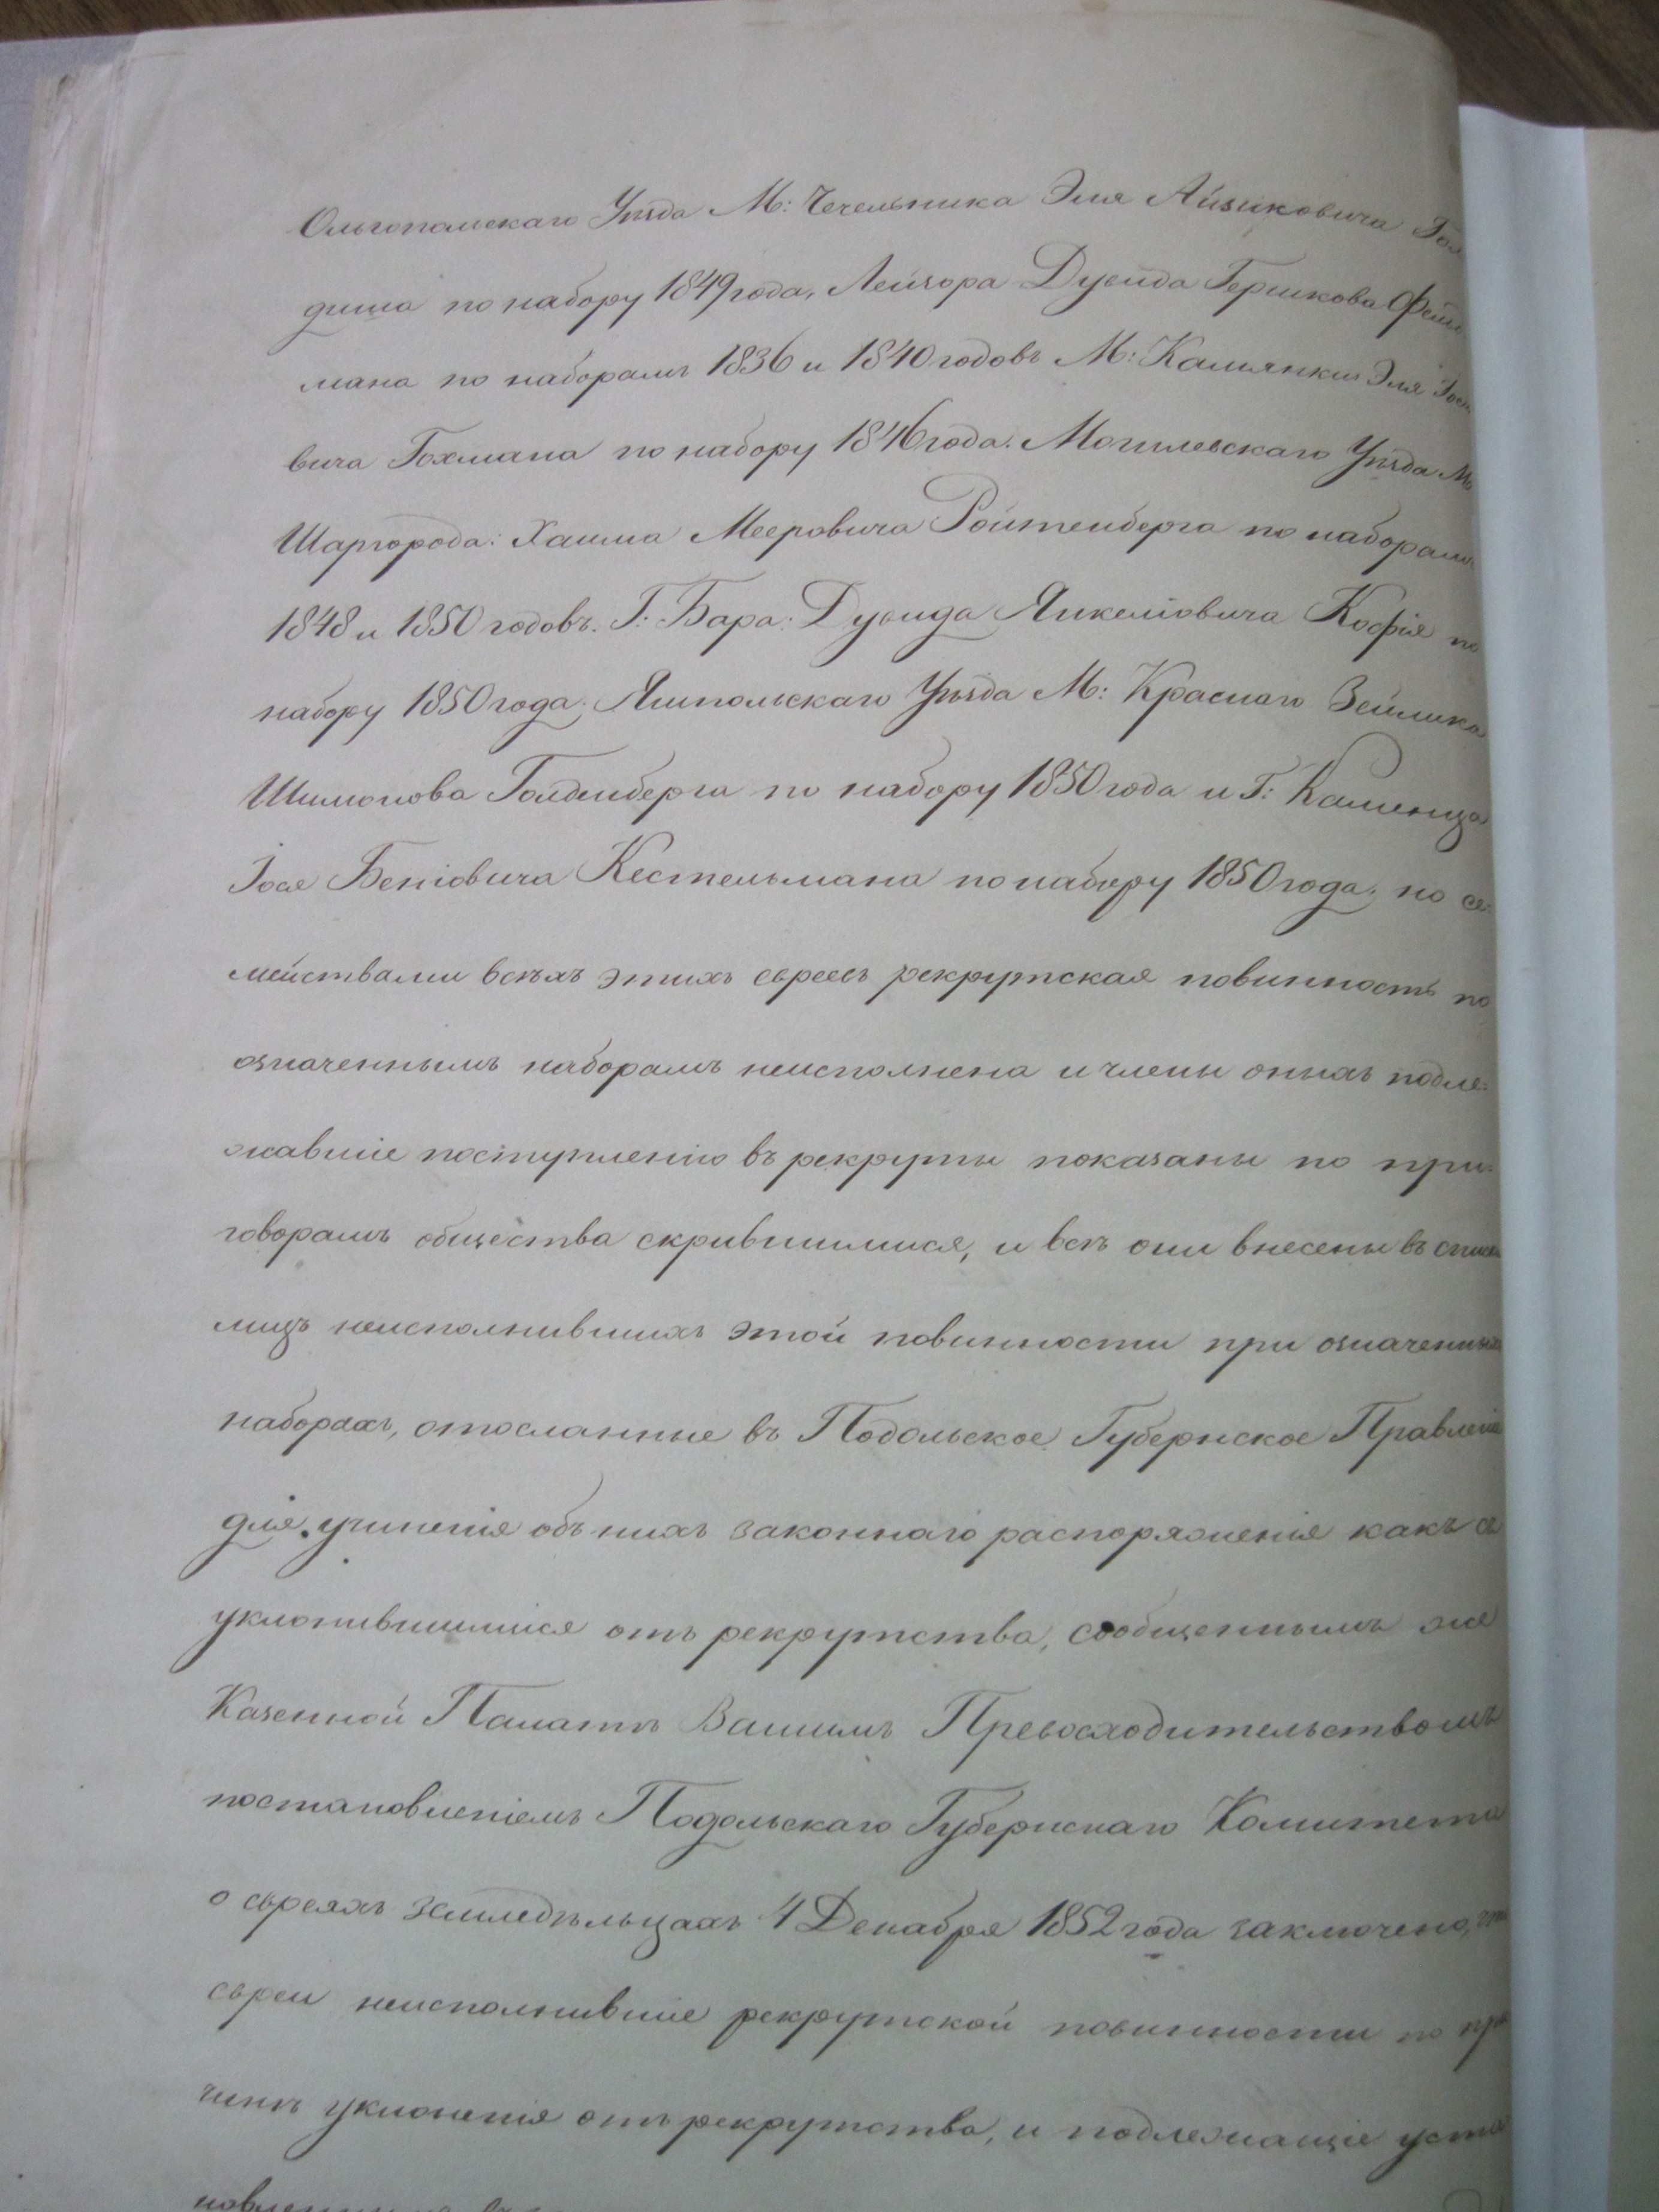 Ольгопольскаго Уѣзда М: Чечельника Эля Айзиковича Гол
диша по набору 1849 года, Лейзора Дувида Гершкова Фельд
мана по наборамъ 1836 и 1840 годовъ М: Камянки Эля Іось
вича Гохмана по набору 1846 года. Могилевскаго Уѣзда М:
Шаргорода: Хаима Мееровича Ройтенберга по наборамъ
1848 и 1850 годовъ. Г: Бара: Дувида Янкеліовича Кофія по
набору 1850 года; Ямпольскаго Уѣзда М: Краснаго Зейлика
Шимонова Голденберга по набору 1850 года и Г: Каменца
Іося Беніовича Кестельмана по набору 1850 года; по се:
мействами всѣхъ этихъ евреевъ рекрутская повинность по
означеннымъ наборамъ неисполнена и члены оныхъ подле:
жавшіе поступленію въ рекруты показаны по при:
говорамъ общества скрившимися, и всѣ они внесены въ списки
лицъ неисполнившихъ этой повинности при означенныхъ
наборахъ, отосланные въ Подольское Губернское Правленіе
для учиненія объ нихъ законнаго распоряженія какъ съ
уклонившимися отъ рекрутства, сообщеннымъ же
Казенной Палатѣ Вашимъ Превосходительствомъ
постановленіемъ Подольскаго Губернскаго Комитета
о евреяхъ земледѣльцахъ 4 Декабря 1852 года заключено, что
евреи неисполнившіе рекрутской повинности по при
чинѣ уклоненія отъ рекрутства, и подлежащіе уста